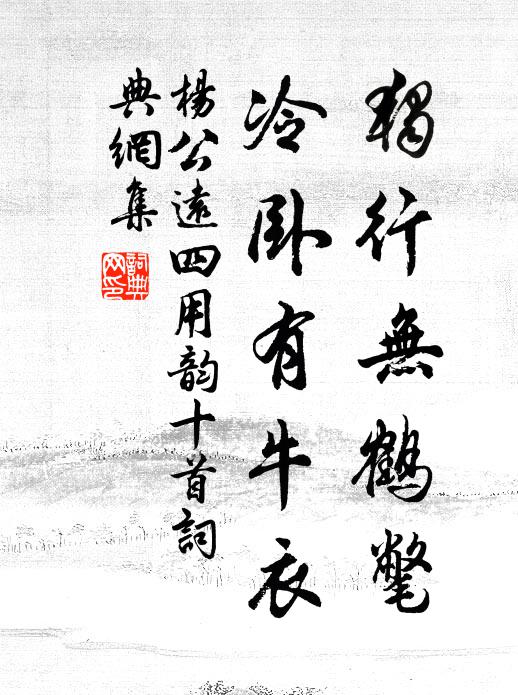 獨行無鶴氅
冷臥有牛衣
楊公遠四用韵十首詞
典網集
詞典網印